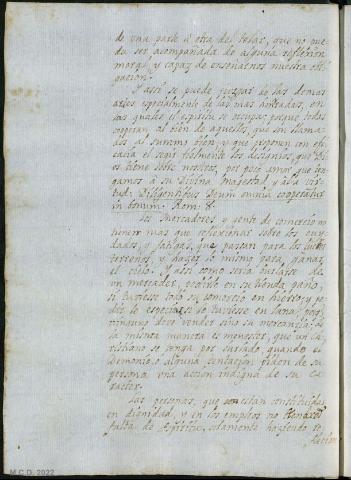 de una parte à otra del telar, que no pue-
da ser acompañada de alguna reflexion
moral, y capaz de enseñarnos nuestra obli-
gacion.
Y assi se puede juzgar de las demas
artes especialmente de las mas                 , en
las quales el espiritu se ocupa; porque todas
cooperan al bien de aquellos, que son llama-
dos al summo bien, y que proponen con efi-
cacia el seguir fielmente los designios, que Di
os tiene sobre nosotros, por                  amor que ten-
gamos à su Divina Magestad, y à la vir-
tud. Diligentibus Deum omnia cooperantur
in bonum. Rom: 8.
Los Mercaderes y gente de comercio no
tienen mas que reflexionar sobre los cuy-
dados, y fatigas, que passan para los
terrenos, y hazer lo mismo para ganar
el cielo. Y assi como seria burlarse de
un mercader, pedirle en su tienda paño,
si tuviesse todo su comercio en hierro; y pe-
dirle especias si le tuviesse en lana; pues
ninguno deve vender sino su mercancia; de
la misma manera es menester, que un Ch
ristiano se tenga por burlado, quando el
Demonio, o alguna tentacion piden de su
persona una accion indigna de su ca-
racter.
Las personas, que estan constituidas
en dignidad, y en los empleos no tendran
falta de Espiritu, solamente haziendo re